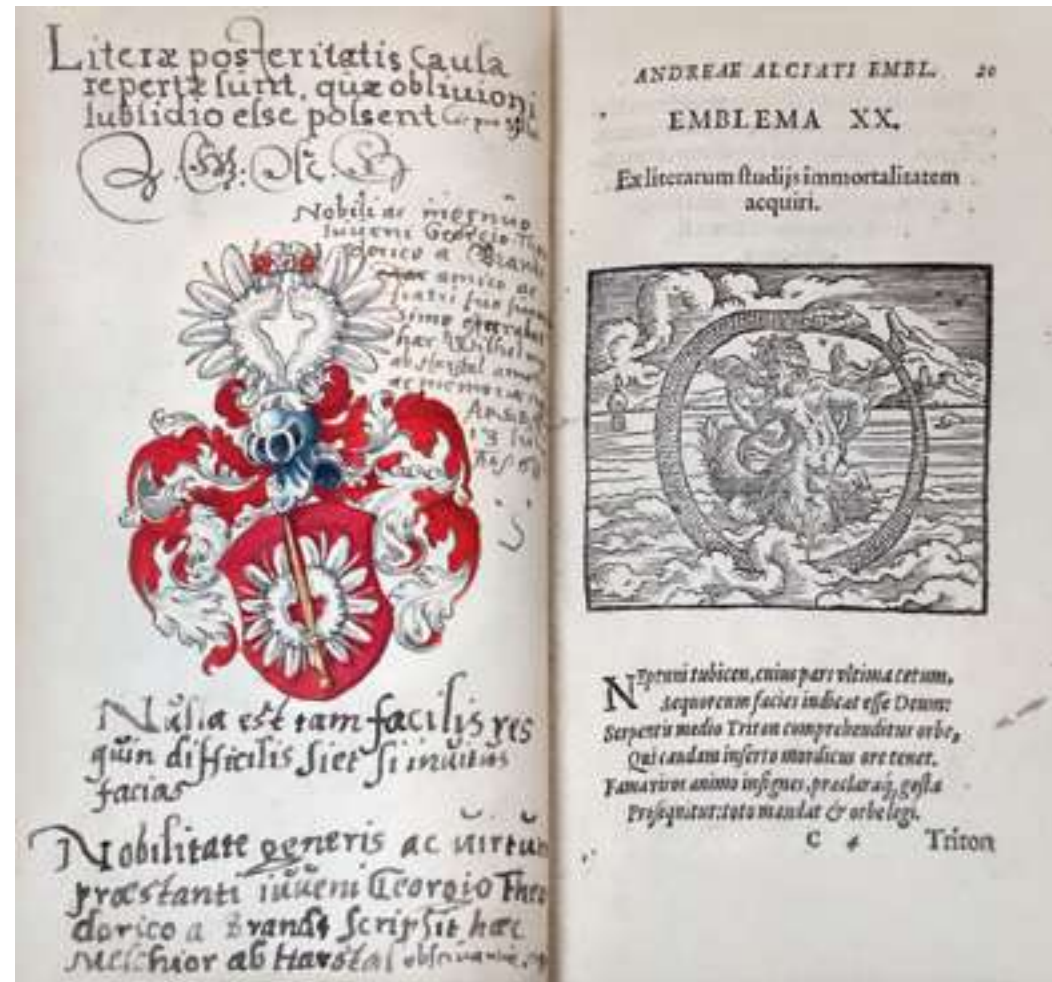 Literæ posteritatis causa
repertæ sunt, quæ oblivioni
subsidio esse possent
Nobili ac
iuveni Georgio
dorico a Brand
amico ac
ab Harstal
ac memoriæ
Nulla est tam facilis res
quin difficilis siet si inuitus
facias
Nobilitate generis ac uirtut
præstanti iuueni Georgio Theo
dorico a Brandt scripsit hæc
Melchior ab Harstal
ANDREAE ALCIATI EMBL. 20
EMBLEMA XX.
Ex literarum studijs immortalitatem
acquiri.
Neptuni tubicen, cuius pars vltima cetum,
Aequoreum facies indicat esse Deum:
Serpentis medio Triton comprehenditur orbe,
Qui caudam inserto mordicus ore tenet.
Fama viros animo insignes, præclaraq́; gesta
Prosequitur: toto mandat & orbe legi.
C 4 Triton